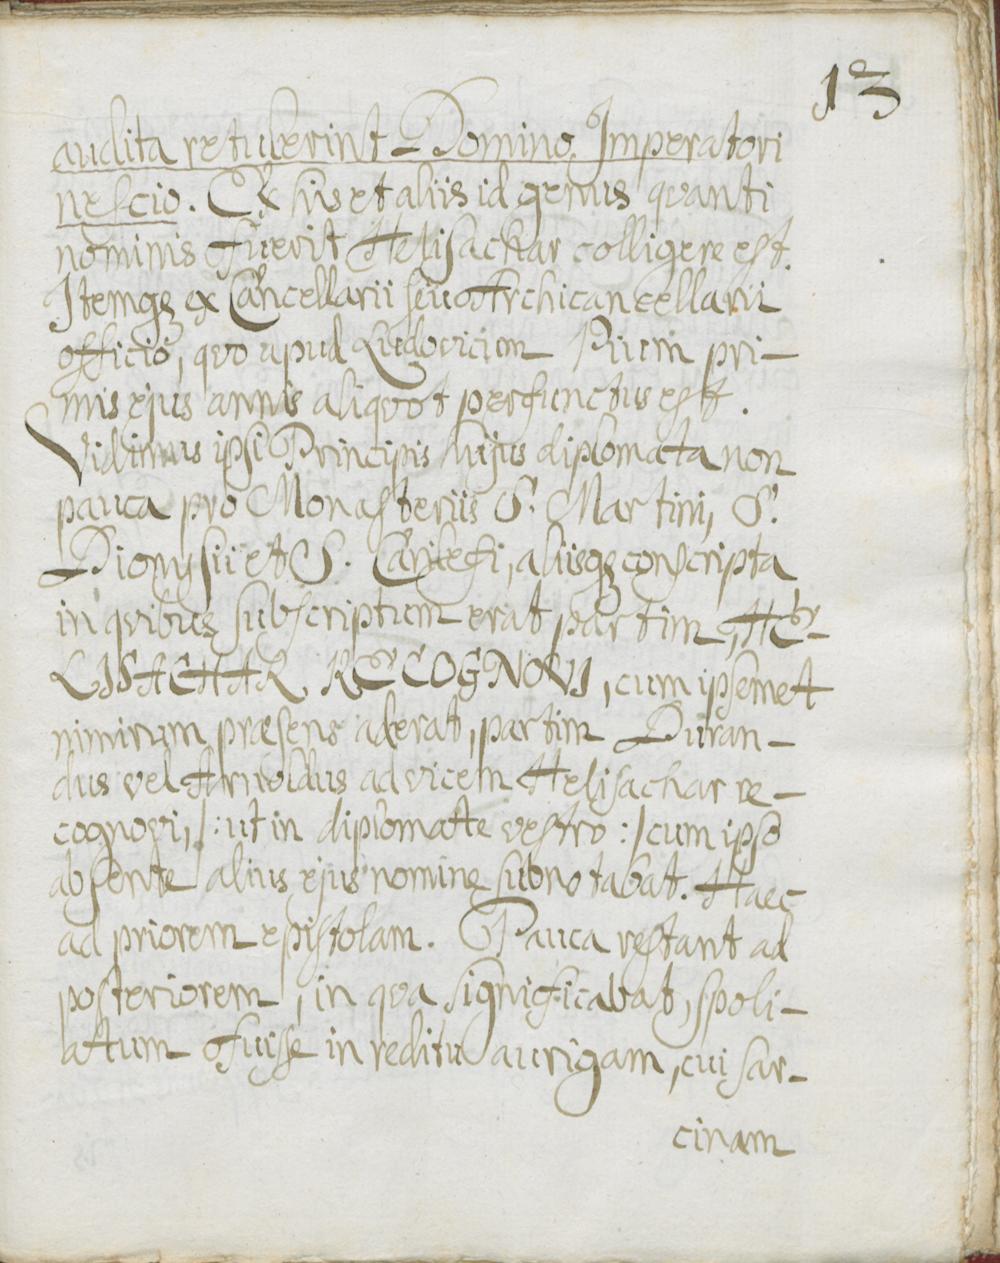 13
audita retulerint Domino Imperatori
nescio. Ex his et aliis id genus quanti
nominis fuerit Helisachar colligere est.
Itemq; ex Cancellarii seu Archicancellarii
officio, quo apud Ludovicum Pium pri-
mis ejus annis aliquot perfunctus est.
Vidimus ipsi Principis hujus diplomata non
pauca pro Monasteriis S. Martini, S.
Dionysii et S. Carilefi, aliisq; conscripta
in quibus subscriptum erat partim, HE-
LISACHAR RECOGNOVI, cum ipsemet
nimirum præsens aderat, partim Duran-
dus vel Arnoldus ad vicem Helisachar re-
cognovi, /: ut in diplomate vestro :/ cum ipso
absente alius ejus nomine subnotabat. Haec
ad priorem epistolam. Pauca restant ad
posteriorem, in qua significabat, spoli-
atum fuisse in reditu aurigam, cui sar-
cinam